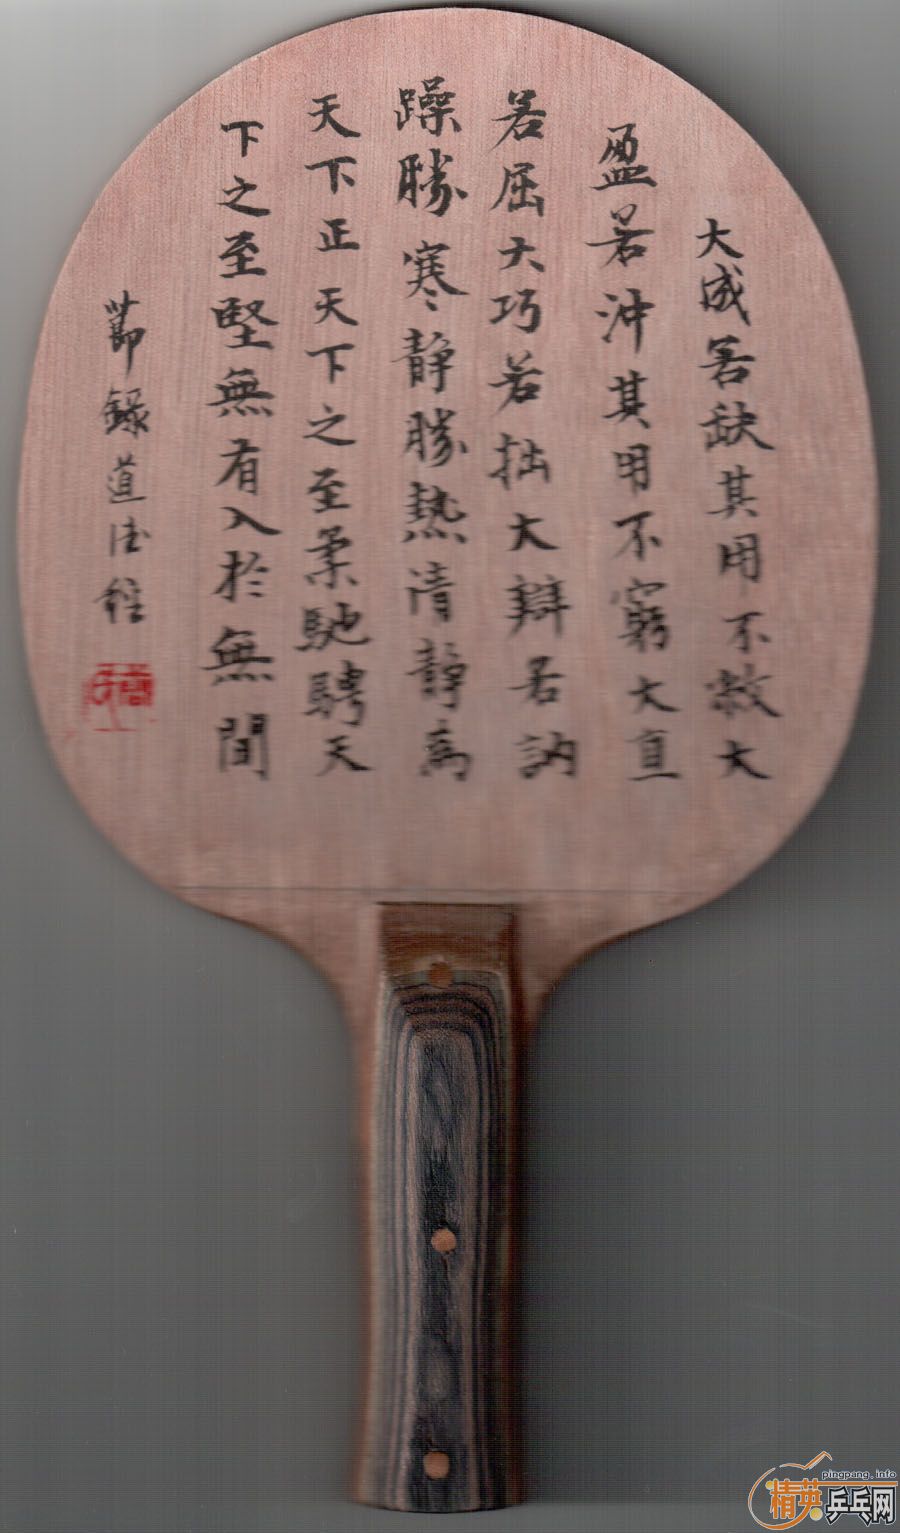 大成若缺其用不敝大
盈若沖其用不窮大直
若屈大巧若拙大辯若訥
躁勝寒静勝熱清静為
天下正天下之至柔馳騁天
下之至堅無有入於無間
節錄道德經
pingpang.info
精英乒乓网